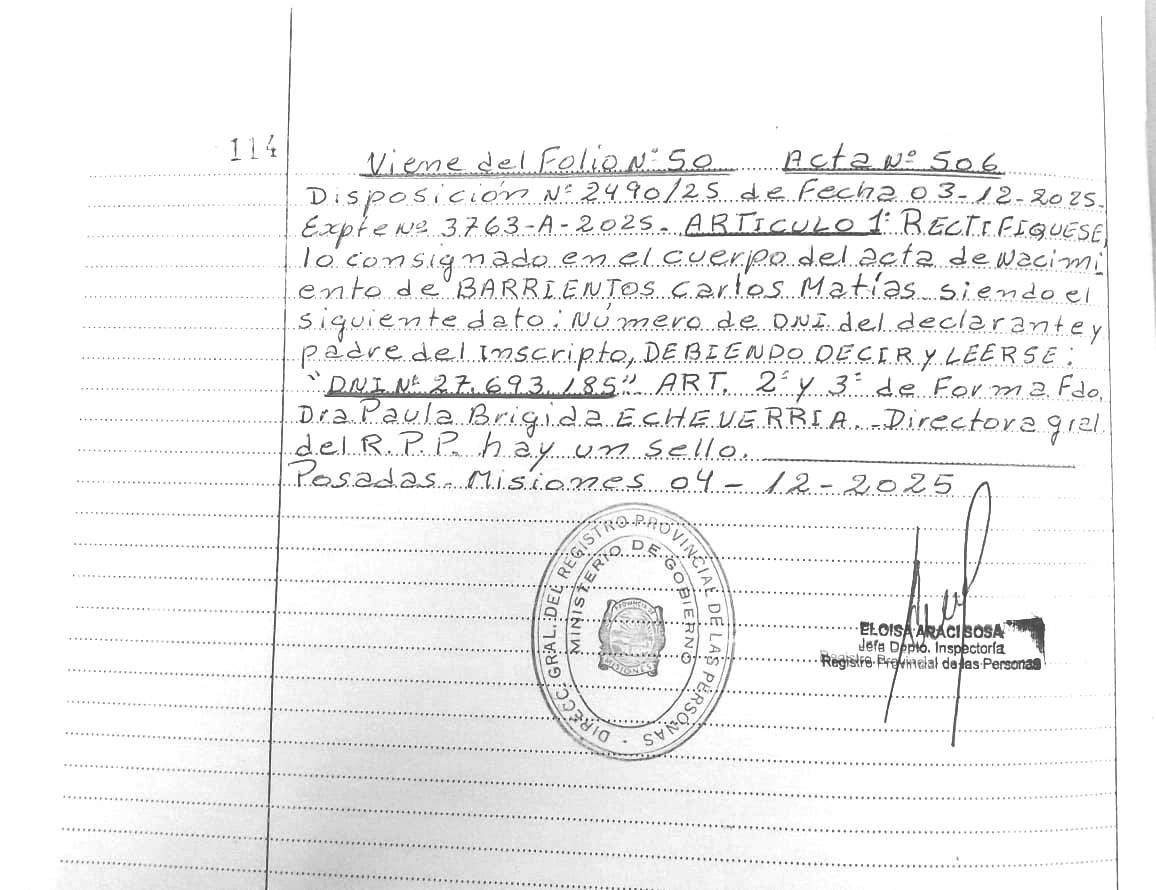 114
Viene del Folio Nº 50 Acta Nº 506
Disposición Nº 2490/25 de Fecha 03-12-2025.
Expte Nº 3763-A-2025. ARTICULO 1º RECTIFIQUESE,
lo consignado en el cuerpo del acta de Nacimi
ento de BARRIENTOS Carlos Matías siendo el
siguiente dato: Número de DNI del declarante y
padre del Inscripto, DEBIENDO DECIR y LEERSE:
"DNI Nº 27.693.185". ART. 2º y 3º de Forma. Fdo.
Dra Paula Brigida ECHEVERRIA.- Directora gral
del R.P.P. hay un sello.
Posadas. Misiones 04-12-2025
DIRECC. GRAL. DEL REGISTRO PROVINCIAL DE LAS PERSONAS
MINISTERIO DE GOBIERNO
PROVINCIA DE
MISIONES
ELOISA ARACI SOSA
Jefa Dpto. Inspectoría
Registro Provincial de las Personas